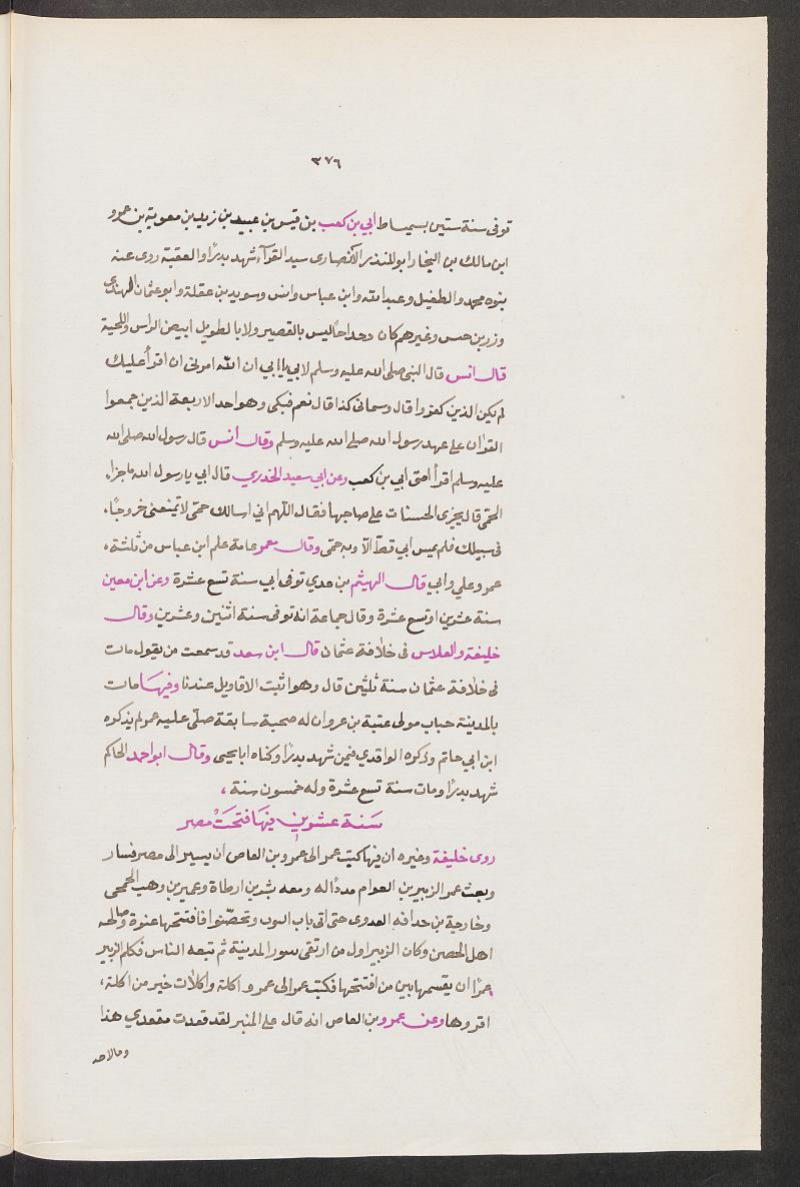 ٣٧٦
توفى سنة ستين بسميساط ابي بن كعب بن قيس بن عبيد بن زيد بن معوية بن عمرو
ابن مالك بن النجار ابو المنذر الأنصارى سيد القرآء شهد بدرًا والعقبة روى عنه
بنوه محمد والطفيل وعبد الله وابن عباس وانس وسويد بن عقلة وابو عثمان النهدي
وزر بن حبس وغيرهم كان دحداحًا ليس بالقصير ولا بالطويل ابيض الراس واللحية
قال انس قال النبى صلى الله عليه وسلم لابي يا ابي ان الله امرني ان اقرأ عليك
لم يكن الذين كفروا قال وسماني كذا قال نعم فبكى وهو احد الاربعة الذين جمعوا
القرٰان على عهد رسول الله صلى الله عليه وسلم وقال انس قال رسول الله صلى الله
عليه وسلم اقرأ امتى ابي بن كعب وعن ابي سعيد الخدري قال ابي يا رسول الله ما جزاء
الحمّى قال يجزى الحسنات على صاحبها فقال اللّهم اني اسالك حمّى لا تمنعنى خروجًا،
فى سبيلك فلم يمس ابي قطّ الّا وبه حمّى وقال معمر عامة علم ابن عباس من ثلٰثة،
عمر وعلي وابي قال الهيثم بن عدي توفى ابي سنة تسع عشرة وعن ابن معين
سنة عشرين او تسع عشرة وقال جماعة انه توفى سنة اثنين وعشرين وقال
خليفة والفلاس فى خلافة عثمان قال ابن سعد قد سمعت من يقول مات
فى خلافة عثمان سنة ثلٰثين قال وهو اثبت الاقاويل عندنا وفيها مات
بالمدينة حباب مولى عتبة بن غزوان له صحبة سابقة صلّى عليه عمر لم يذكره
ابن ابي حاتم وذكره الواقدي فيمن شهد بدرًا وكناه ابا يحيى وقال ابو احمد الحاكم
شهد بدرًا ومات سنة تسع عشرة وله خمسون سنة،
سَنة عشرين فيهَا فتحَتْ مصر
روى خليفة وغيره ان فيها كتب عمر الى عمرو بن العاص ان يسير الى مصر فسار
وبعث عمر الزبير بن العوام مددًا له ومعه بشر بن ارطاة وعمير بن وهب الجمحى
وخارجة بن حدافه العدوى حتى اتى باب اليون وتحصّنوا فافتتحها عنوة وصالحه
اهل الحصن وكان الزبير اول من ارتقى سور المدينة ثم تبعه الناس فكلم الزبير
عمرًا ان يقسمها بين من افتتحها فكتب عمر الى عمرو اكلة واكلات خير من اكلة،
اقروها وعن عمرو بن العاص انه قال على المنبر لقد قعدت مقعدي هذا
وما لاحد